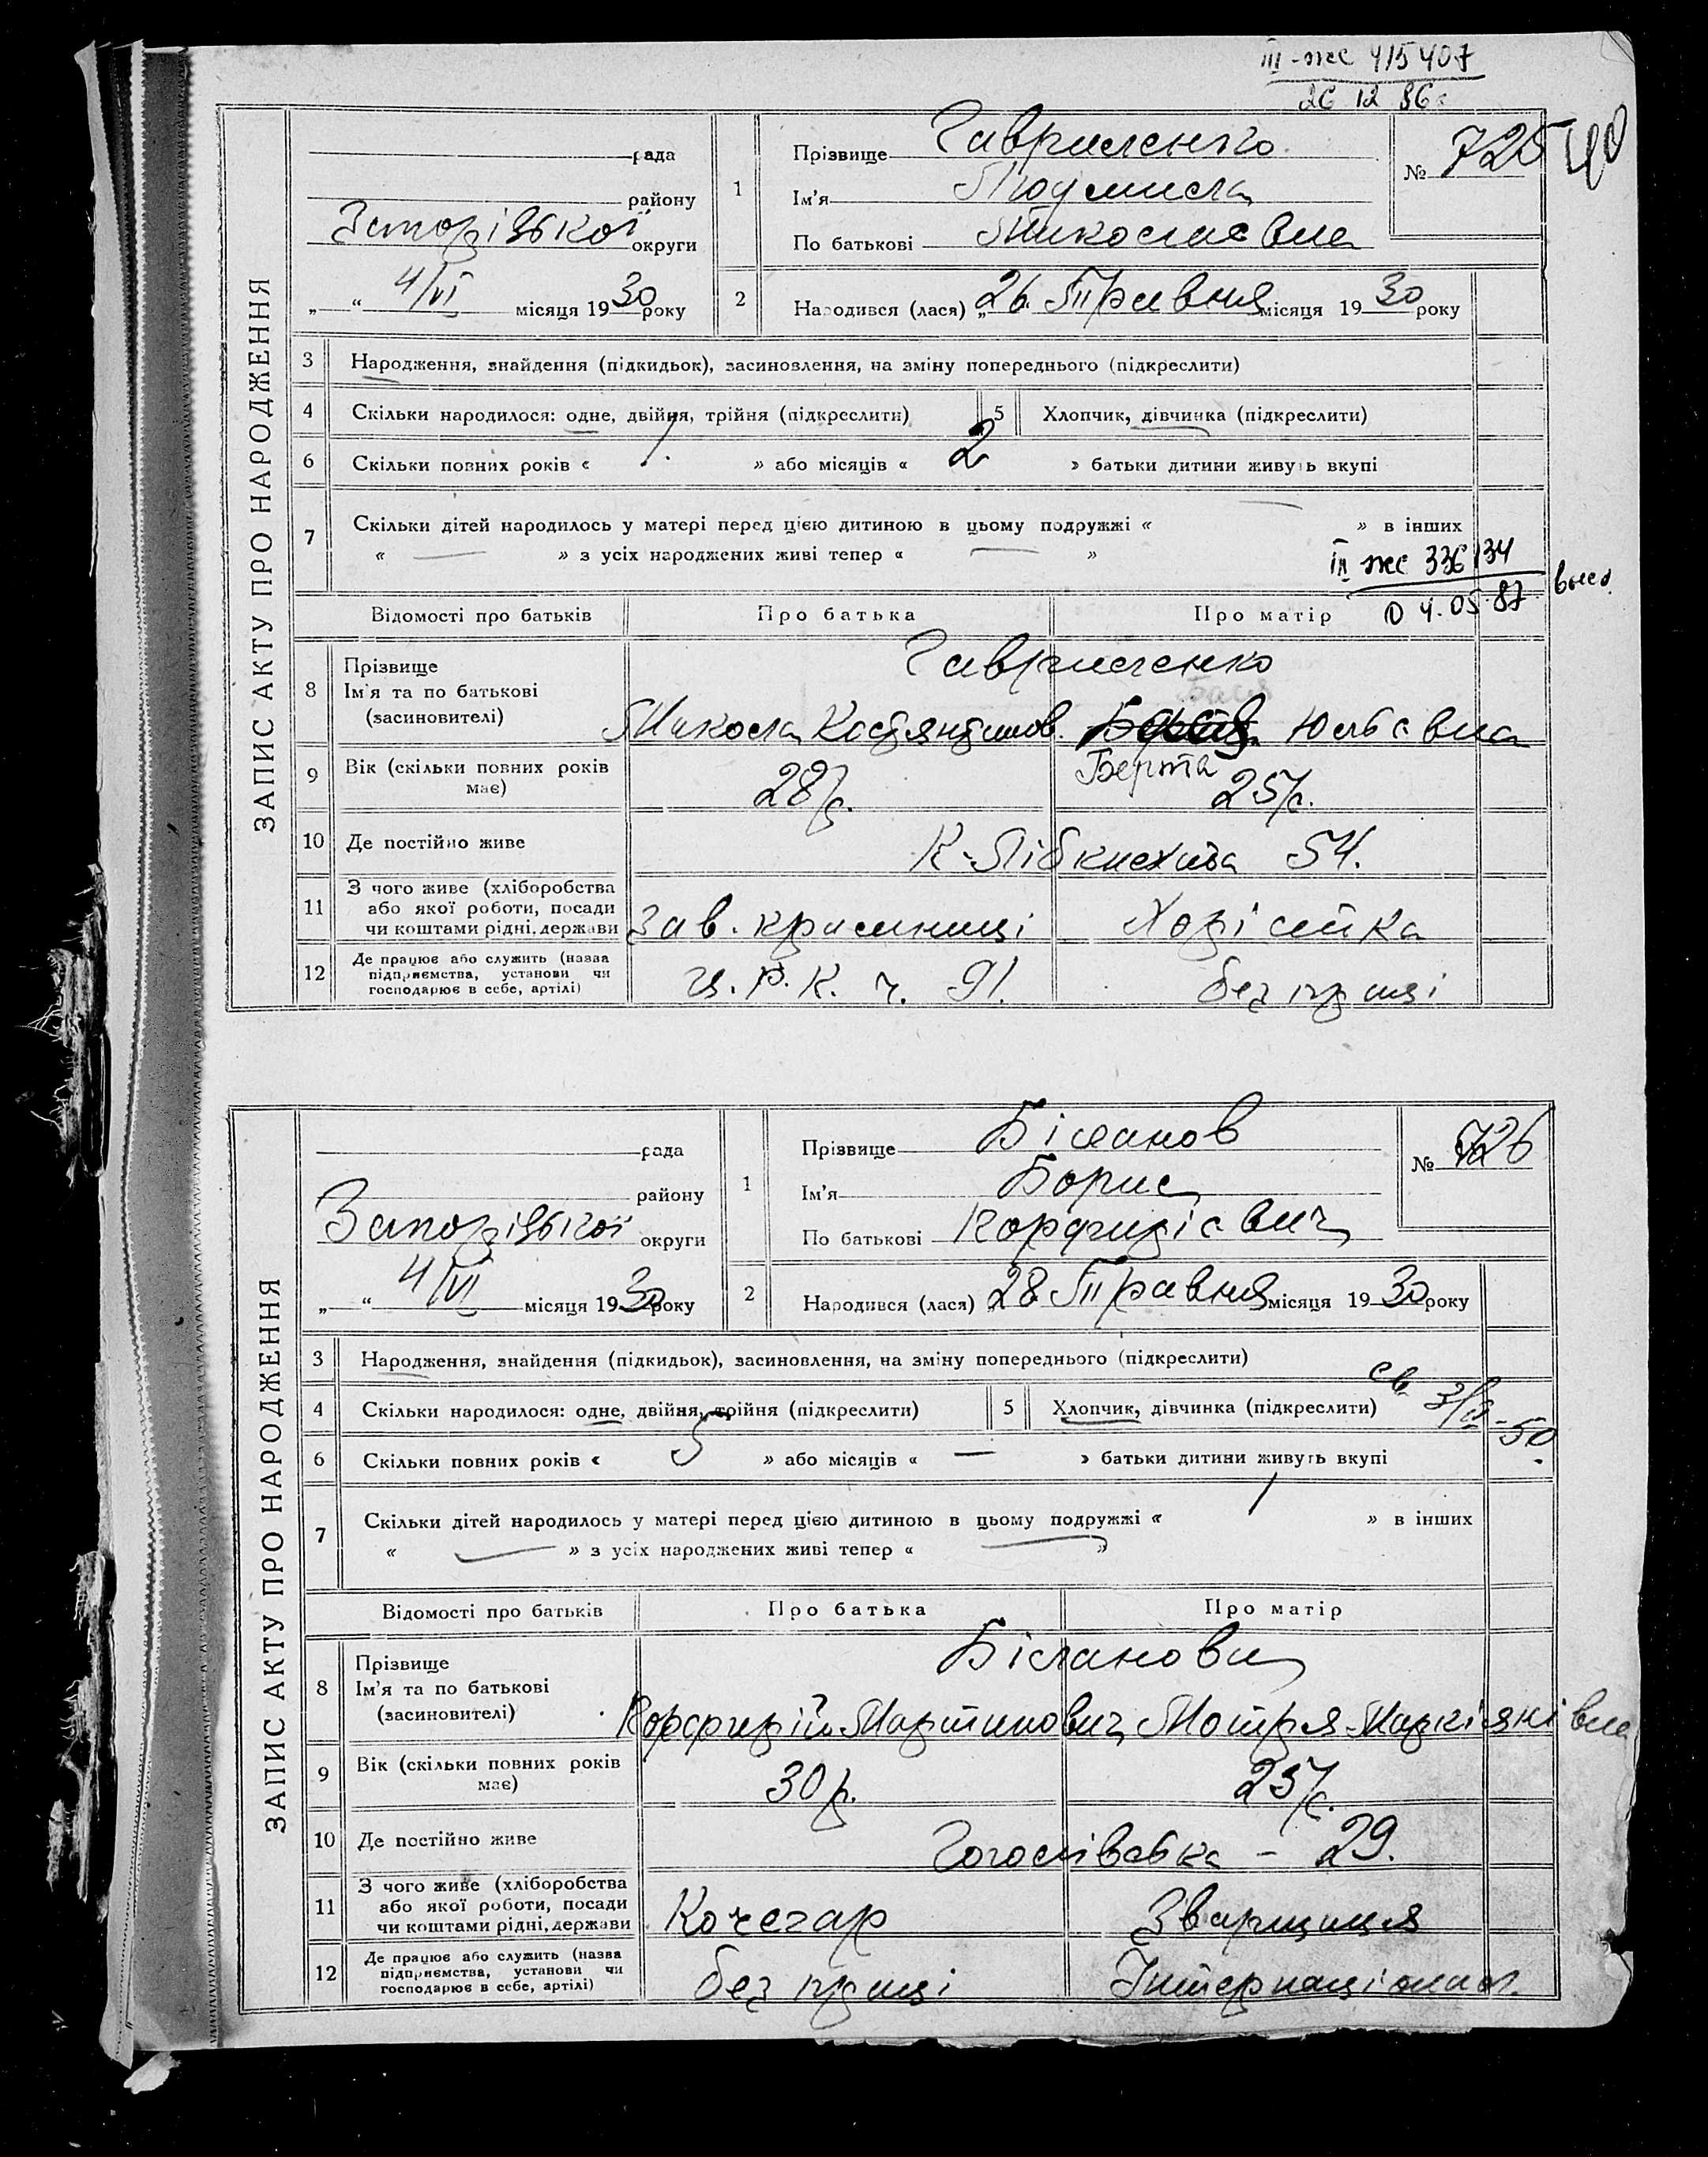 III-жс 415407
26 12 86
ЗАПИС АКТУ ПРО НАРОДЖЕННЯ
рада
району
Запорізької округи
„ “ 4/VI місяця 1930 року
1 Прізвище Гавриленко
Ім'я Людмила
По батькові Миколаєвна
№ 725
40
2 Народився (лася) „26 Травня місяця 1930 року
3 Народження, знайдення (підкидьок), засиновлення, на зміну попереднього (підкреслити)
4 Скільки народилося: одне, двійня, трійня (підкреслити) 5 Хлопчик, дівчинка (підкреслити)
6 Скільки повних років « 1. » або місяців « 2 » батьки дитини живуть вкупі
7 Скільки дітей народилось у матері перед цією дитиною в цьому подружжі « — » в інших
« — » з усіх народжених живі тепер « — »
III жс 336134
04.05.87
Відомості про батьків Про батька Про матір
8 Прізвище Ім'я та по батькові (засиновителі)
Гавриленко
Микола Костянтинов. Юльевна
Берта
9 Вік (скільки повних років має) 28 р. 25 р.
10 Де постійно живе К-Лібкнехта 54.
11 З чого живе (хліборобства або якої роботи, посади чи коштами рідні, держави Зав. крамниці Хазяйка
12 Де працює або служить (назва підприємства, установи чи господарює в себе, артілі) Ц.Р.К. ч. 91. без праці
ЗАПИС АКТУ ПРО НАРОДЖЕННЯ
рада
району
Запорізької округи
„ “ 4/VI місяця 1930 року
1 Прізвище Біланов
Ім'я Борис
По батькові Порфирієвич
№ 726
2 Народився (лася) 28 Травня місяця 1930 року
3 Народження, знайдення (підкидьок), засиновлення, на зміну попереднього (підкреслити)
4 Скільки народилося: одне, двійня, трійня (підкреслити) 5 Хлопчик, дівчинка (підкреслити)
6 Скільки повних років « 5 » або місяців « — » батьки дитини живуть вкупі
7 Скільки дітей народилось у матері перед цією дитиною в цьому подружжі « 1 » в інших
« — » з усіх народжених живі тепер « — »
Відомості про батьків Про батька Про матір
8 Прізвище Ім'я та по батькові (засиновителі)
Біланови
Порфирій Мартинович Мотря Маркіянівна
9 Вік (скільки повних років має) 30 р. 25 р.
10 Де постійно живе Гоголівська - 29.
11 З чого живе (хліборобства або якої роботи, посади чи коштами рідні, держави Кочегар Зварщиця
12 Де працює або служить (назва підприємства, установи чи господарює в себе, артілі) без праці Інтернаціонал.